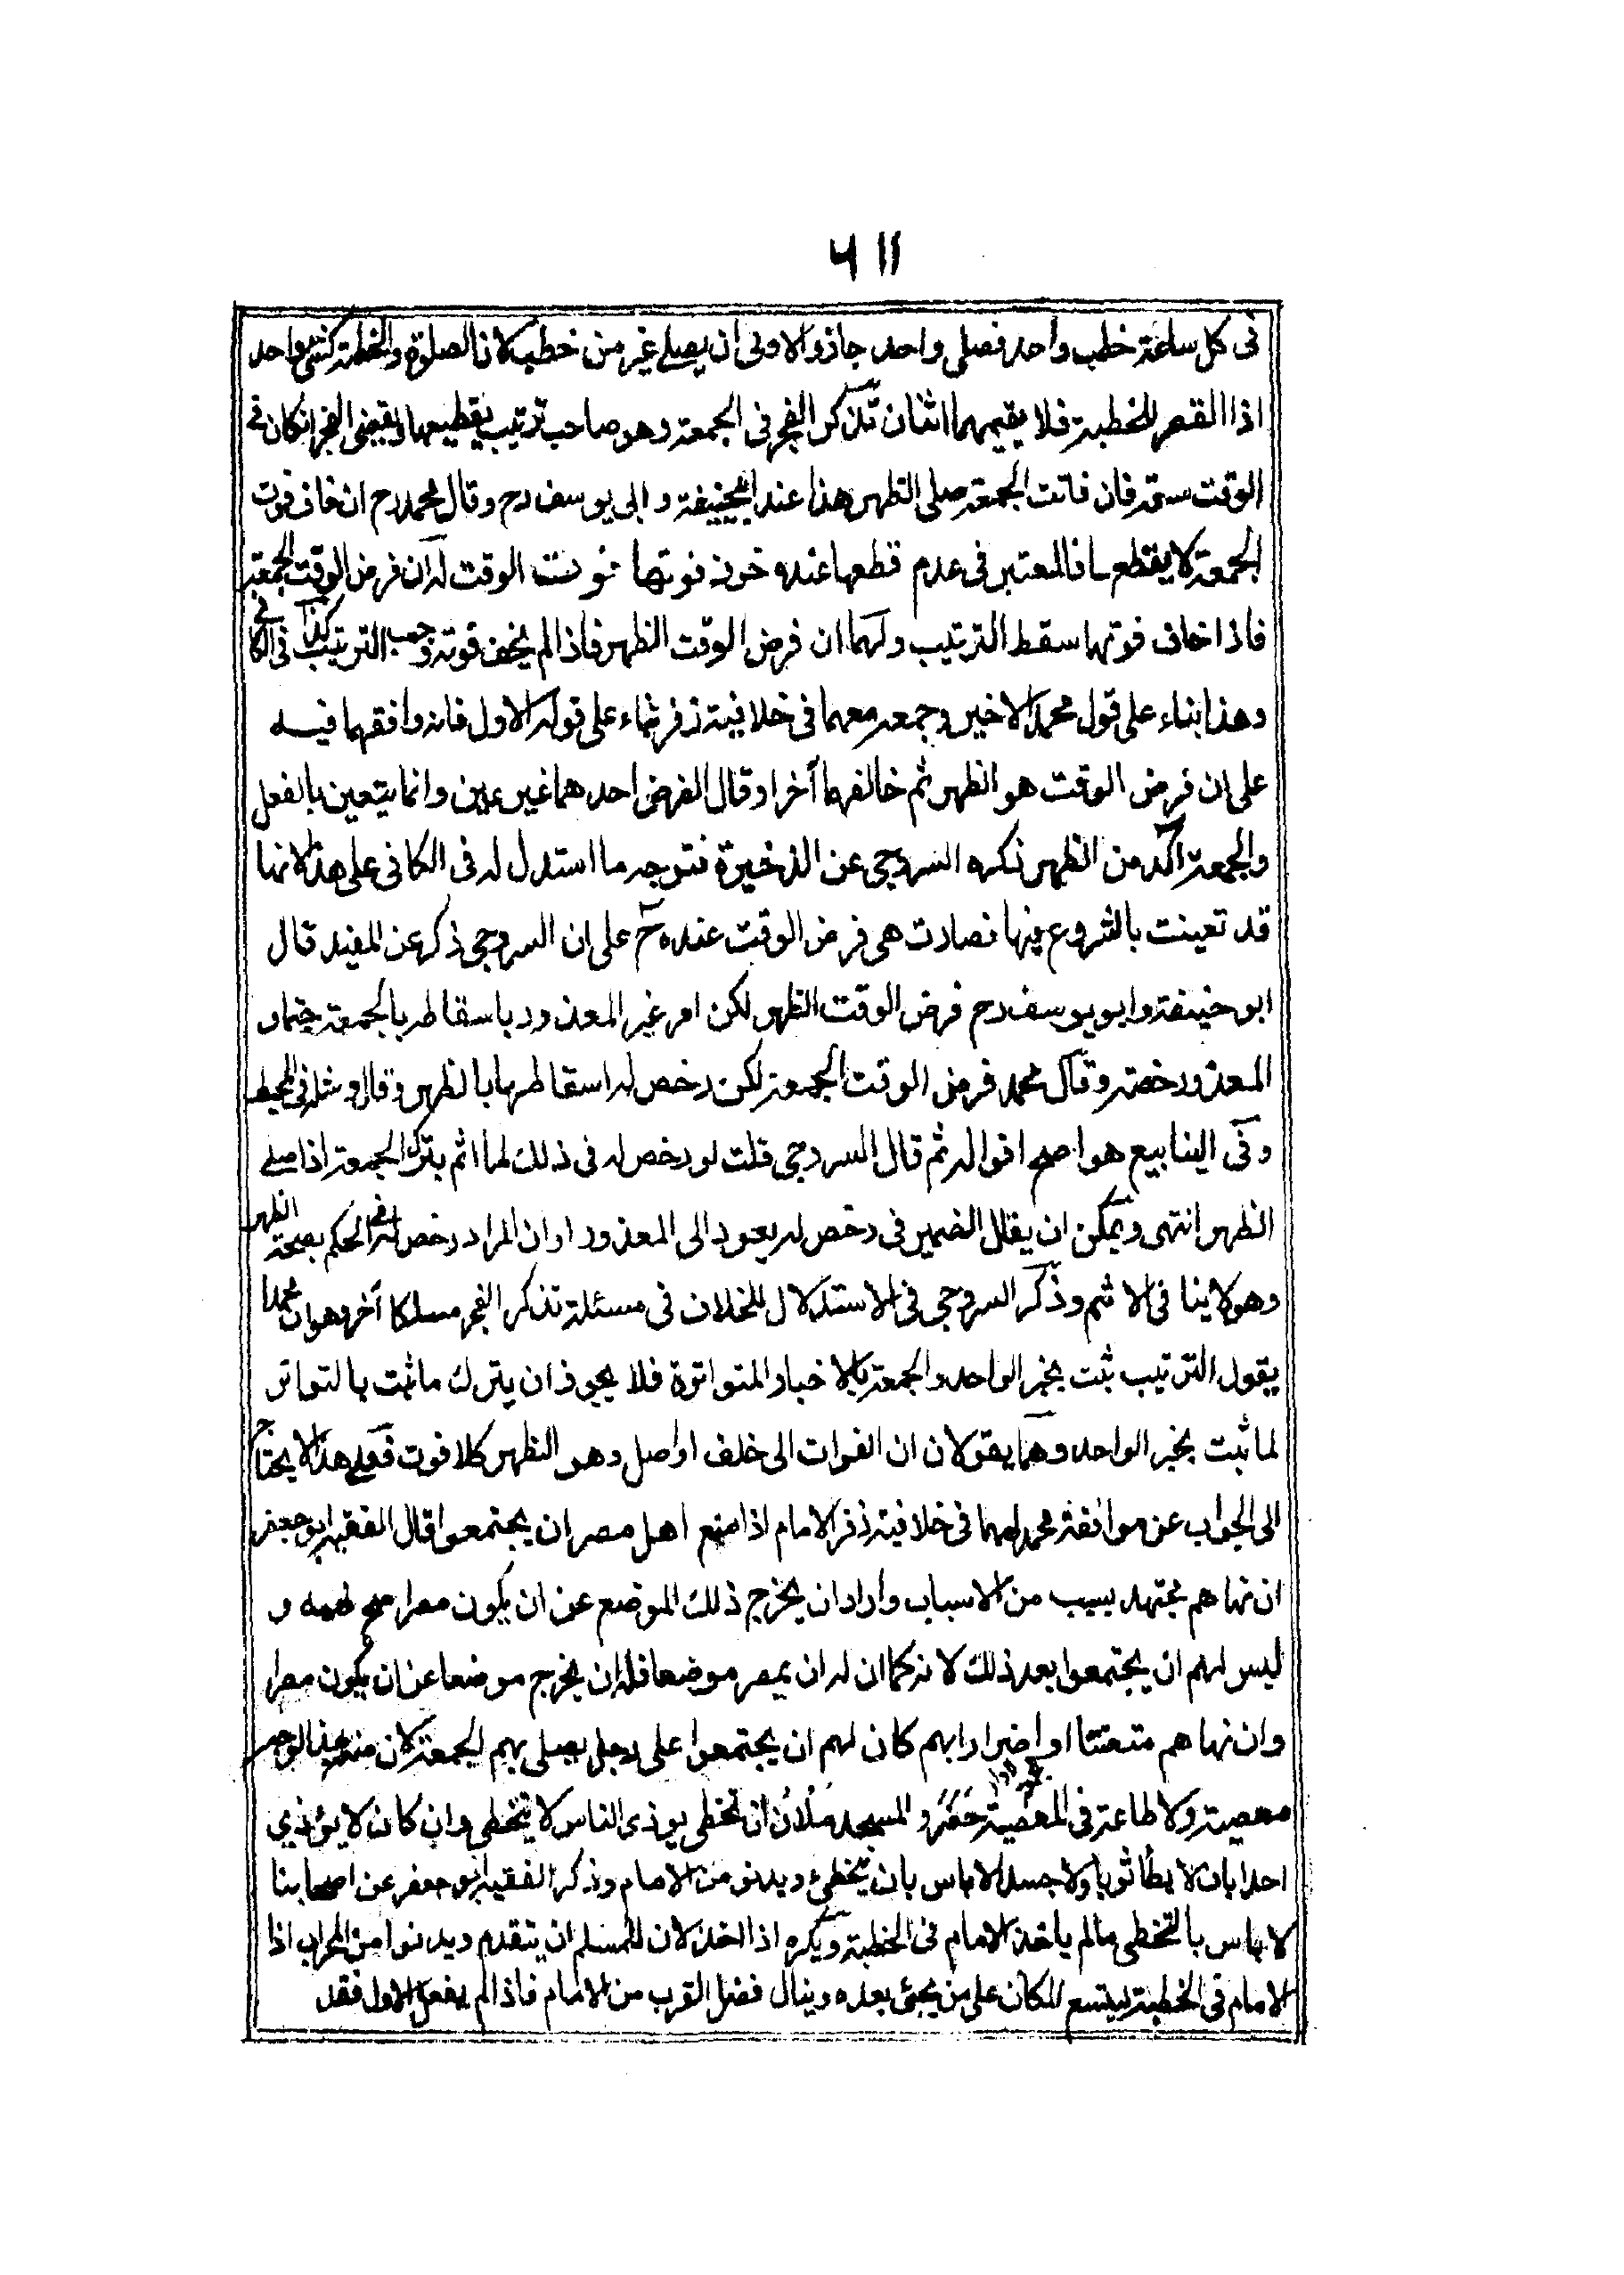 ٦١١
فى كل ساعة خطب واحد فصلى واحد جاز والاولى ان يصلى غير من خطب لان الصلوة والخطبة كشئ واحد
اذا القصر للخطبة فلا يقيمهما اثنان تذكر الفجر فى الجمعة وهو صاحب ترتيب يقطعها ويقضى الفجر انكان فى
الوقت سعة فان فاتت الجمعة صلى الظهر هذا عند ابيحنيفة وابى يوسف رح وقال محمد رح ان خاف فوت
الجمعة لا يقطع فالمعتبر فى عدم قطعها عنده خوف فوتها فوت الوقت له ان فرض الوقت الجمعة
فاذا خاف فوتها سقط الترتيب ولهما ان فرض الوقت الظهر فاذا لم يخف فوته وجب الترتيب كذا فى الكافى
وهذا بناء على قول محمد الاخير وجمعه معهما فى خلافية زفر بناء على قوله الاول فانه وافقهما فيه
على ان فرض الوقت هو الظهر ثم خالفهما آخرا وقال الفرض احدهما غير عين وانما يتعين بالفعل
والجمعة آكد من الظهر ذكره السروجى عن الذخيرة فتوجه ما استدل له فى الكافى على هذا لانها
قد تعينت بالشروع فيها فصارت هى فرض الوقت عنده ح على ان السروجى ذكر عن المفيد قال
ابو حنيفة وابو يوسف رح فرض الوقت الظهر لكن امر غير المعذور باسقاطه بالجمعة حتما و
المعذور رخصة وقال محمد فرض الوقت الجمعة لكن رخص له اسقاطها بالظهر وقال ومثله فى المحيط
وفى الينابيع هو اصح اقواله ثم قال السروجى قلت لو رخص له فى ذلك لما اثم بترك الجمعة اذا صلى
الظهر انتهى ويمكن ان يقال الضمير فى رخص له يعود الى المعذور او ان المراد رخص له فى الحكم بصحة الظهر
وهو لا ينافى الاثم وذكر السروجى فى الاستدلال للخلاف فى مسئلة تذكر الفجر مسلكا آخر وهو ان محمدا
يقول الترتيب ثبت بخبر الواحد والجمعة بالاخبار المتواترة فلا يجوز ان يترك ما ثبت بالتواتر
لما ثبت بخبر الواحد وهما يقولان ان الفوات الى خلف او اصل وهو الظهر كلا فوت فعلى هذا لا يحتاج
الى الجواب عن موافقة محمد لهما فى خلافية زفر الامام اذا منع اهل مصر ان يجتمعوا قال الفقيه ابو جعفر
ان نهاهم مجتهد بسبب من الاسباب واراد ان يخرج ذلك الموضع عن ان يكون مصرا صح نهيه و
ليس لهم ان يجتمعوا بعد ذلك لانه كما ان له ان يمصر موضعا فله ان يخرج موضعا عن ان يكون مصرا
وان نهاهم متعنتا او اضرارا بهم كان لهم ان يجتمعوا على رجل يصلى بهم الجمعة لان منعه هذا الوجه
معصية ولا طاعة فى المعصية حضر والمسجد ملآن ان تخطى يوذى الناس لا يتخطى وان كان لا يؤذى
احدا بان لا يطأ ثوبا ولا جسدا لا باس بان يتخطى ويدنو من الامام وذكر الفقيه ابو جعفر عن اصحابنا
لا باس بالتخطى مالم ياخذ الامام فى الخطبة ويكره اذا اخذ لان للمسلم ان يتقدم ويدنوا من المحراب اذا
الامام فى الخطبة ليتسع المكان على من يجئ بعده وينال فضل القرب من الامام فاذا لم يفعل الاول فقد